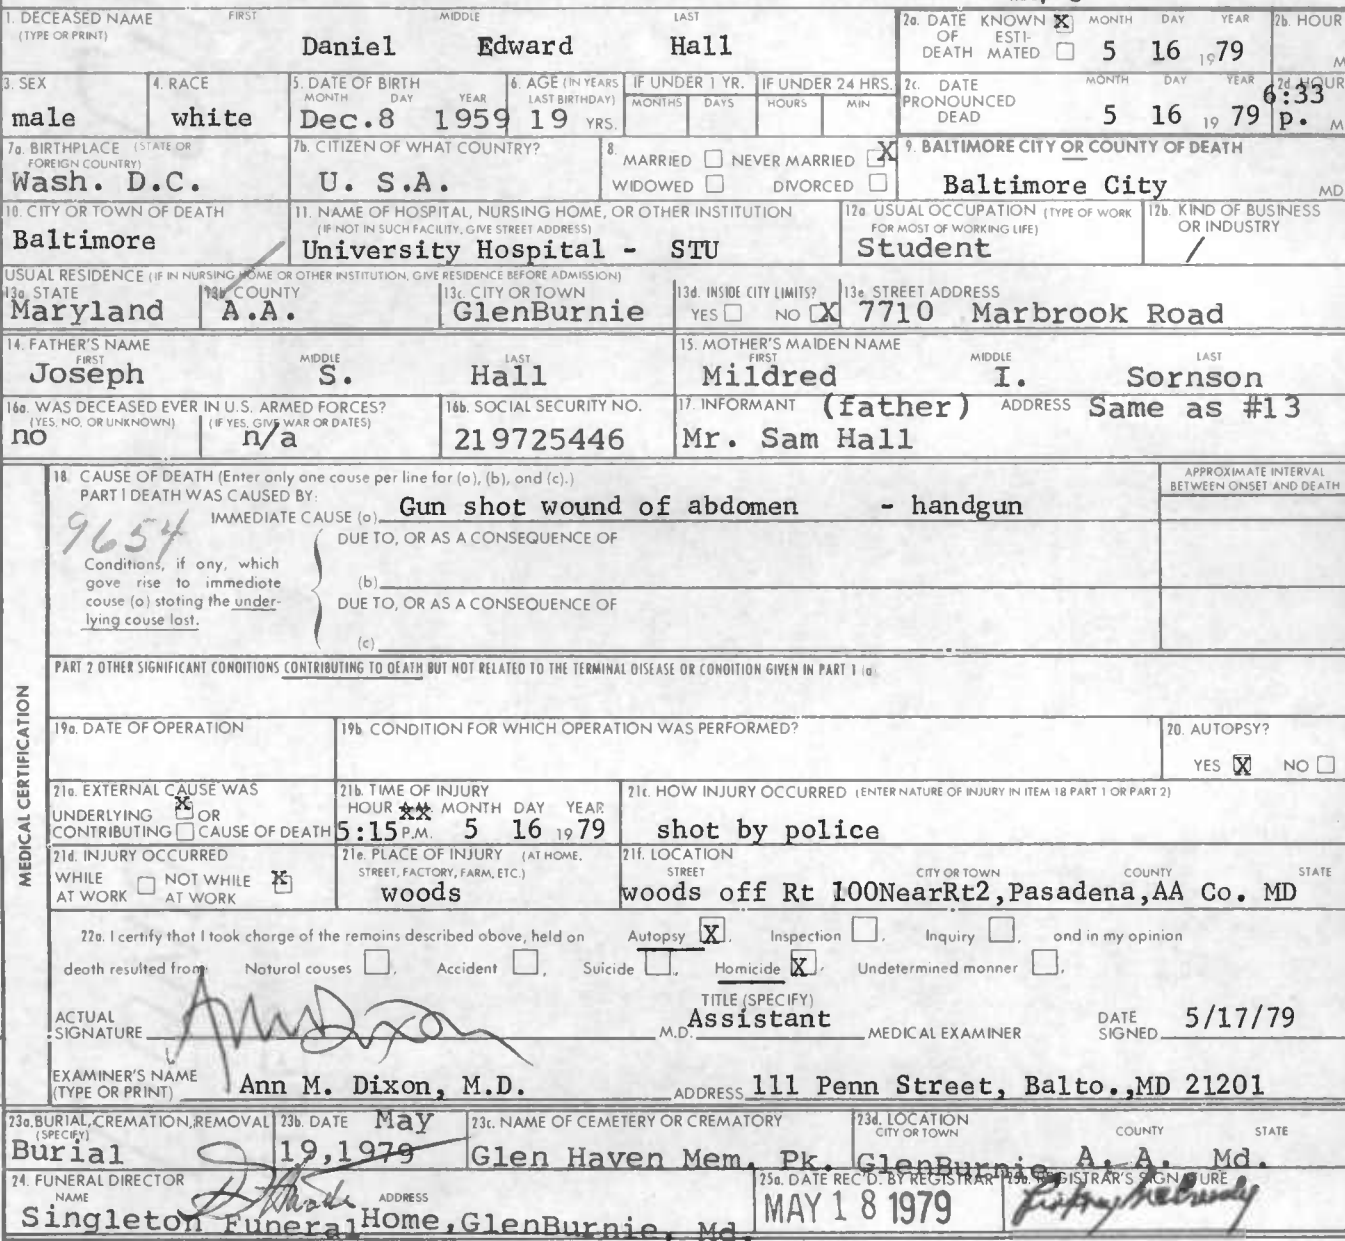 1. DECEASED NAME FIRST MIDDLE LAST
(TYPE OR PRINT)
Daniel Edward Hall
2a. DATE OF DEATH KNOWN X ESTIMATED MONTH DAY YEAR
5 16 1979
2b. HOUR
M
3. SEX
male
4. RACE
white
5. DATE OF BIRTH
MONTH DAY YEAR
Dec.8 1959
6. AGE (IN YEARS LAST BIRTHDAY)
19 YRS.
IF UNDER 1 YR.
MONTHS DAYS
IF UNDER 24 HRS.
HOURS MIN
2c. DATE PRONOUNCED DEAD MONTH DAY YEAR
5 16 19 79
2d. HOUR
6:33
p. M
7a. BIRTHPLACE (STATE OR
FOREIGN COUNTRY)
Wash. D.C.
7b. CITIZEN OF WHAT COUNTRY?
U. S.A.
8.
MARRIED NEVER MARRIED X
WIDOWED DIVORCED
9. BALTIMORE CITY OR COUNTY OF DEATH
Baltimore City MD
10. CITY OR TOWN OF DEATH
Baltimore
11. NAME OF HOSPITAL, NURSING HOME, OR OTHER INSTITUTION
(IF NOT IN SUCH FACILITY, GIVE STREET ADDRESS)
University Hospital - STU
12a. USUAL OCCUPATION (TYPE OF WORK
FOR MOST OF WORKING LIFE)
Student
12b. KIND OF BUSINESS
OR INDUSTRY
/
USUAL RESIDENCE (IF IN NURSING HOME OR OTHER INSTITUTION, GIVE RESIDENCE BEFORE ADMISSION)
13a. STATE
Maryland
13b. COUNTY
A.A.
13c. CITY OR TOWN
GlenBurnie
13d. INSIDE CITY LIMITS?
YES NO X
13e. STREET ADDRESS
7710 Marbrook Road
14. FATHER'S NAME
FIRST MIDDLE LAST
Joseph S. Hall
15. MOTHER'S MAIDEN NAME
FIRST MIDDLE LAST
Mildred I. Sornson
16a. WAS DECEASED EVER IN U.S. ARMED FORCES?
(YES, NO, OR UNKNOWN) (IF YES, GIVE WAR OR DATES)
no n/a
16b. SOCIAL SECURITY NO.
219725446
17. INFORMANT (father) ADDRESS Same as #13
Mr. Sam Hall
MEDICAL CERTIFICATION
18. CAUSE OF DEATH (Enter only one cause per line for (a), (b), and (c).)
PART 1 DEATH WAS CAUSED BY:
APPROXIMATE INTERVAL
BETWEEN ONSET AND DEATH
IMMEDIATE CAUSE (a) Gun shot wound of abdomen - handgun
9654
DUE TO, OR AS A CONSEQUENCE OF
Conditions, if any, which
gave rise to immediate
cause (a) stating the under-
lying cause last.
(b)
DUE TO, OR AS A CONSEQUENCE OF
(c)
PART 2 OTHER SIGNIFICANT CONDITIONS CONTRIBUTING TO DEATH BUT NOT RELATED TO THE TERMINAL DISEASE OR CONDITION GIVEN IN PART 1 (a)
19a. DATE OF OPERATION
19b. CONDITION FOR WHICH OPERATION WAS PERFORMED?
20. AUTOPSY?
YES X NO
21a. EXTERNAL CAUSE WAS
UNDERLYING X OR
CONTRIBUTING CAUSE OF DEATH
21b. TIME OF INJURY
HOUR MONTH DAY YEAR
5:15 P.M. 5 16 1979
21c. HOW INJURY OCCURRED (ENTER NATURE OF INJURY IN ITEM 18 PART 1 OR PART 2)
shot by police
21d. INJURY OCCURRED
WHILE AT WORK NOT WHILE AT WORK X
21e. PLACE OF INJURY (AT HOME,
STREET, FACTORY, FARM, ETC.)
woods
21f. LOCATION
STREET CITY OR TOWN COUNTY STATE
woods off Rt 100NearRt2,Pasadena,AA Co. MD
22a. I certify that I took charge of the remains described above, held on Autopsy X, Inspection , Inquiry , and in my opinion
death resulted from: Natural causes , Accident , Suicide , Homicide X, Undetermined manner .
ACTUAL
SIGNATURE Ann M Dixon M.D.
TITLE (SPECIFY)
Assistant MEDICAL EXAMINER
DATE
SIGNED 5/17/79
EXAMINER'S NAME
(TYPE OR PRINT) Ann M. Dixon, M.D. ADDRESS 111 Penn Street, Balto.,MD 21201
23a. BURIAL, CREMATION, REMOVAL
(SPECIFY)
Burial
23b. DATE May
19,1979
23c. NAME OF CEMETERY OR CREMATORY
Glen Haven Mem. Pk.
23d. LOCATION
CITY OR TOWN COUNTY STATE
GlenBurnie A. A. Md.
24. FUNERAL DIRECTOR
NAME ADDRESS
Singleton Funeral Home,GlenBurnie, Md.
25a. DATE REC'D. BY REGISTRAR
MAY 18 1979
25b. REGISTRAR'S SIGNATURE